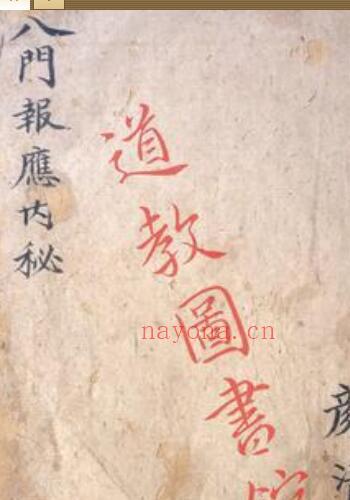 八門報應内秘
道教圖書
nayona.cn
彦